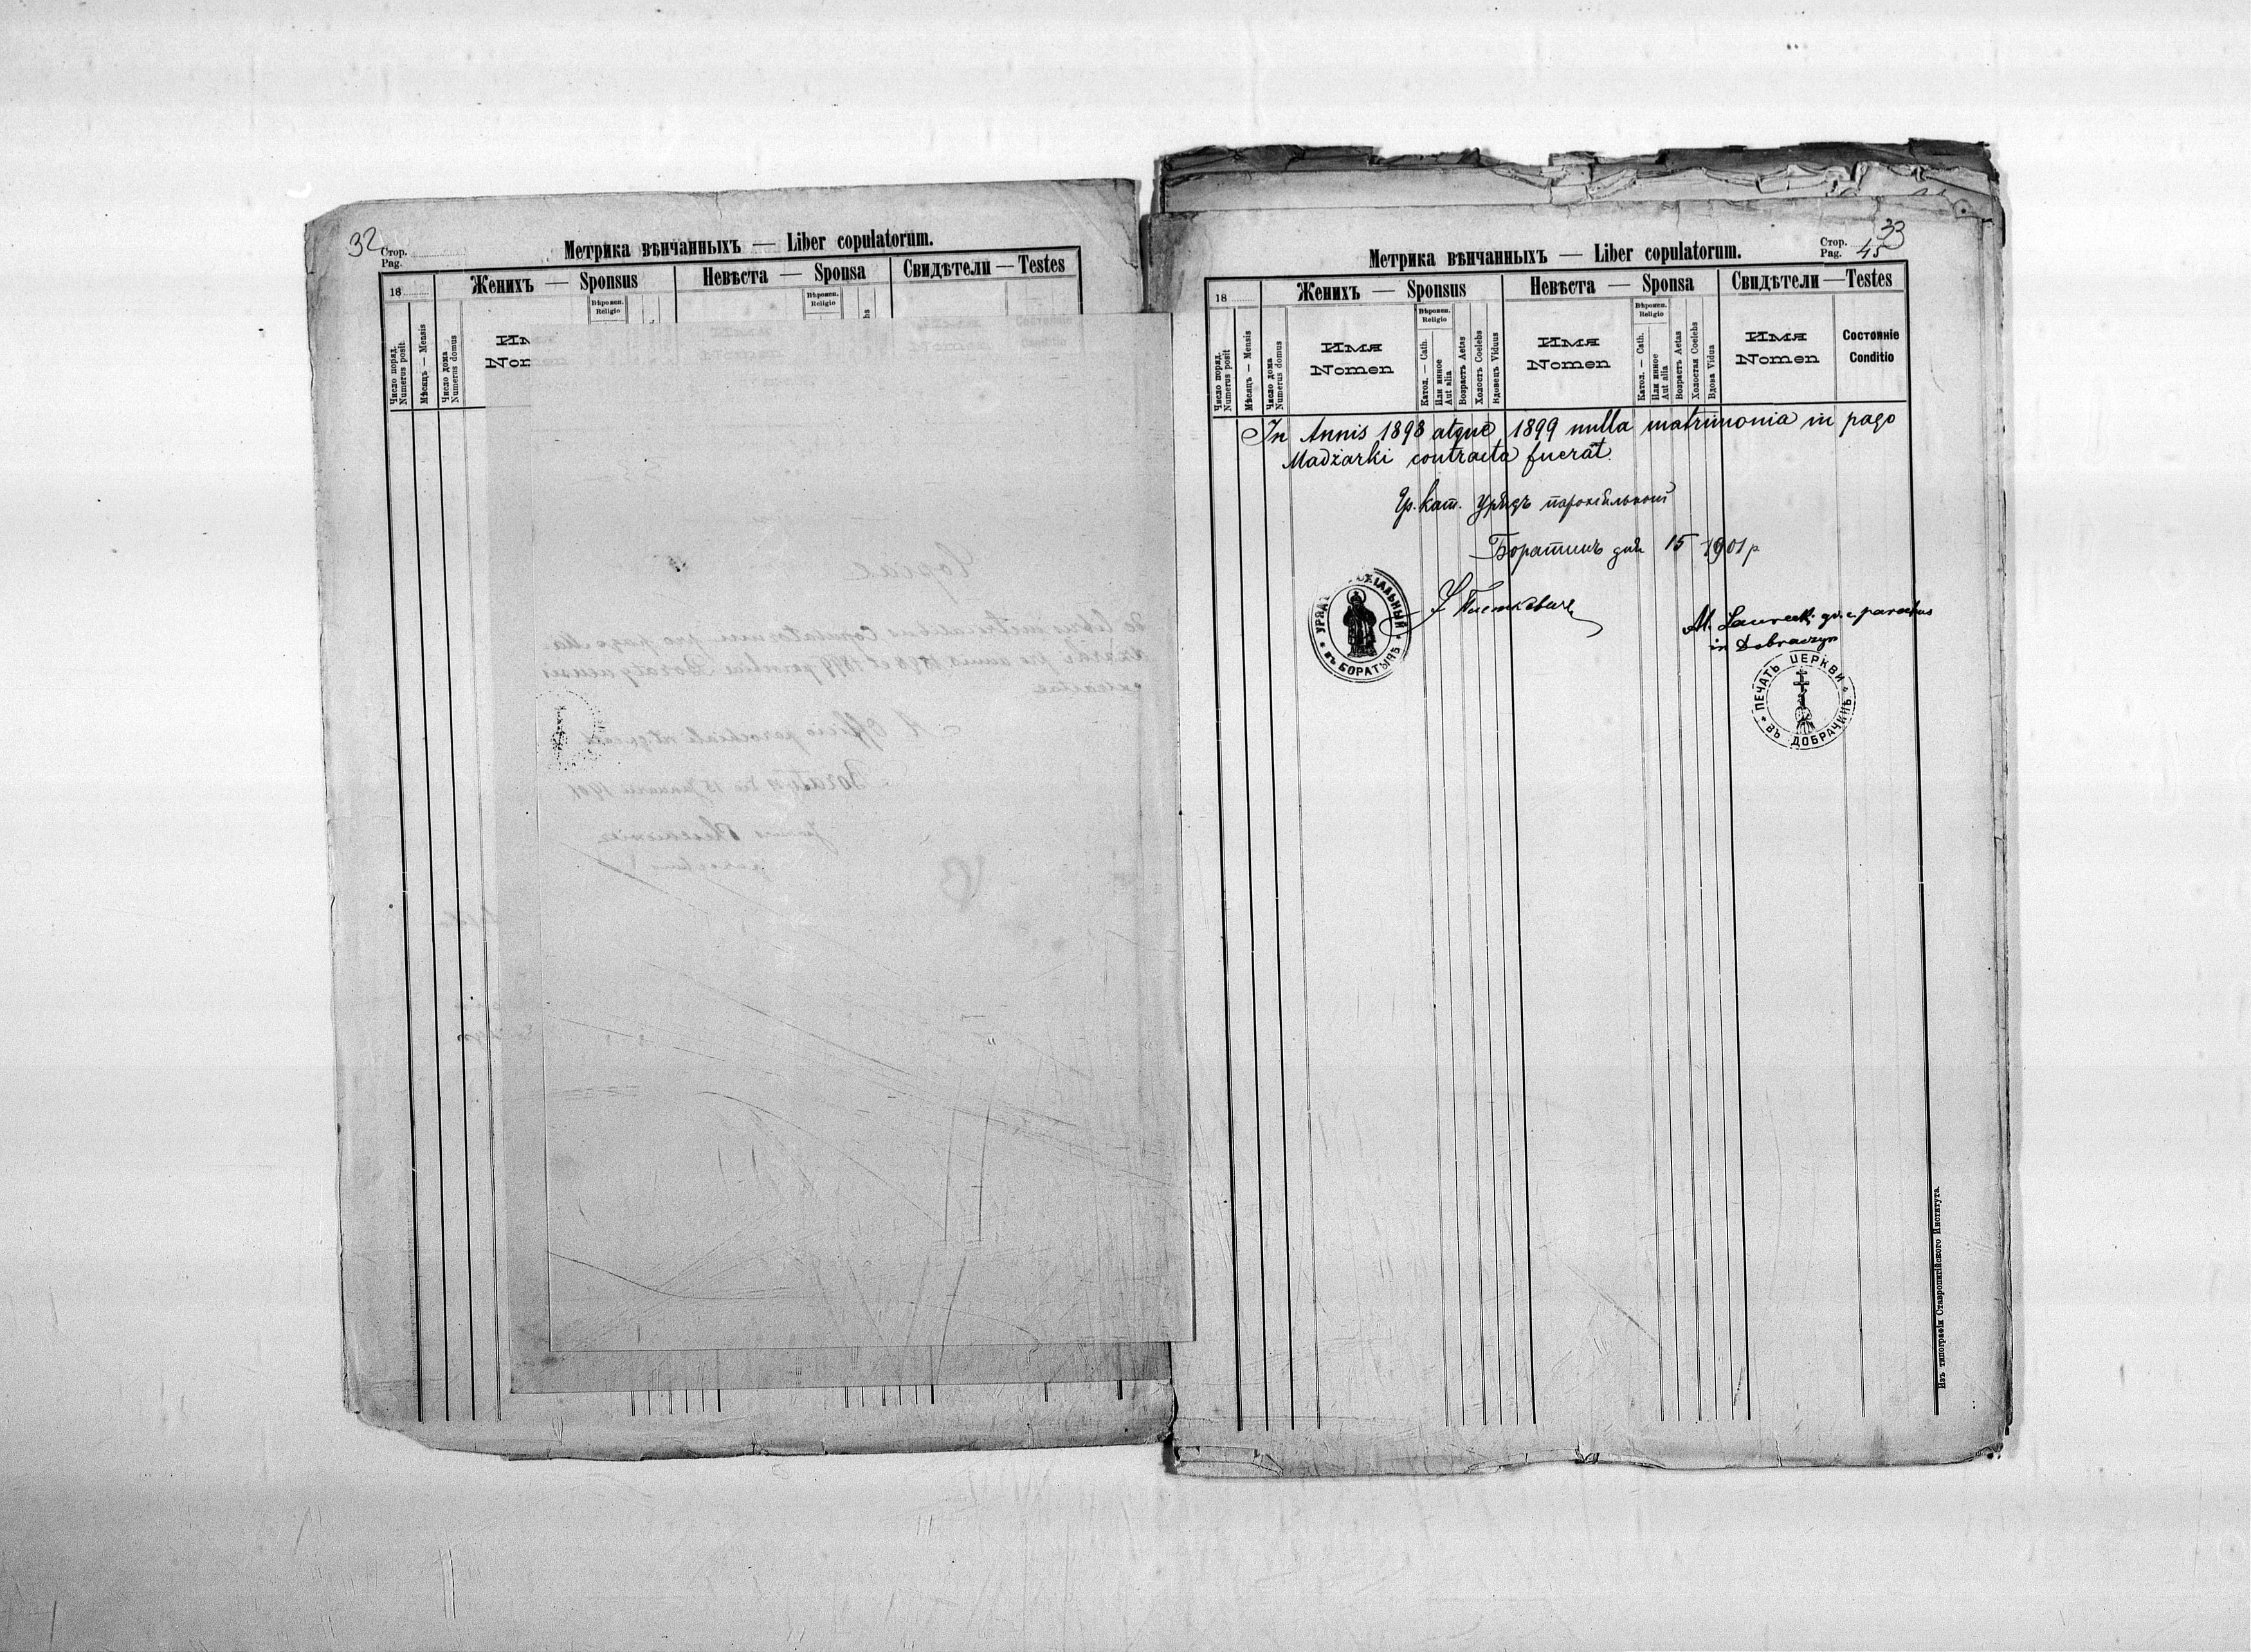 32
Стор.
Pag.
Метрика вѣнчанныхъ — Liber copulatorum.
18
Женихъ — Sponsus
Невѣста — Sponsa
Свидѣтели — Testes
Вѣроисп.
Religio
Вѣроисп.
Religio
Число поряд.
Numerus posit
Мѣсяцъ — Mensis
Число дома
Numerus domus
33
Стор.
Pag. 45
Метрика вѣнчанныхъ — Liber copulatorum.
18
Женихъ — Sponsus
Невѣста — Sponsa
Свидѣтели — Testes
Число поряд.
Numerus posit
Мѣсяцъ — Mensis
Число дома
Numerus domus
Имя
Nomen
Вѣроисп.
Religio
Катол. — Cath.
Или иное
Aut alia
Возрастъ Aetas
Холостъ Coelebs
Вдовецъ Viduus
Имя
Nomen
Вѣроисп.
Religio
Катол. — Cath.
Или иное
Aut alia
Возрастъ Aetas
Холостая Coelebs
Вдова Vidua
Имя
Nomen
Состояніе
Conditio
In Annis 1898 atque 1899 nulla matrimonia in pago
Madżarki contracta fuerãt.
Гр. кат. Урядъ парохіальный
Боратинъ дня 15 1901 р
УРЯДЪ ПАРОХІАЛЬНЫЙ
ВЪ БОРАТЫНѢ
M. Laurecki gr. c. parochus
in Dobraczyn
ПЕЧАТЬ ЦЕРКВИ
ВЪ ДОБРАЧИНѢ
Изъ типографіи Ставропигійского Института.